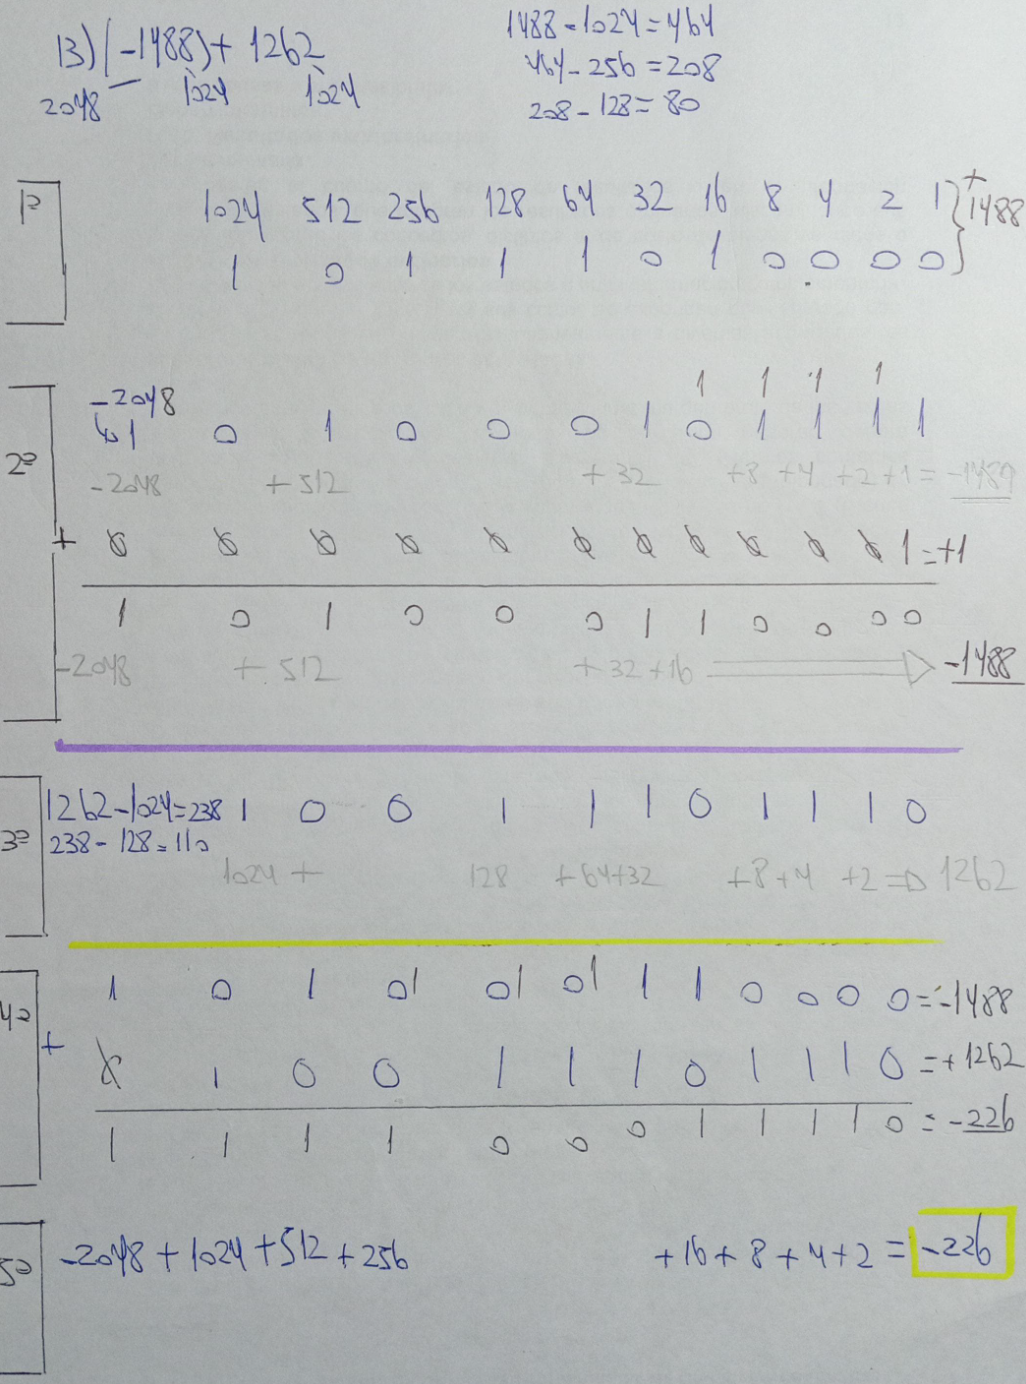 13) (-1488) + 1262
2048 1024 1024
1488 - 1024 = 464
464 - 256 = 208
208 - 128 = 80
1º
1024 512 256 128 64 32 16 8 4 2 1 } +1488
1 0 1 1 1 0 1 0 0 0 0
2º
1 1 1 1
-2048
↳1 0 1 0 0 0 1 0 1 1 1 1
-2048 + 512 + 32 +8 +4 +2 +1 = -1489
+ 0 0 0 0 0 0 0 0 0 0 0 1 = +1
1 0 1 0 0 0 1 1 0 0 0 0
-2048 + 512 + 32 + 16 ⇒ -1488
3º
1262 - 1024 = 238 1 0 0 1 1 1 0 1 1 1 0
238 - 128 = 110
1024 + 128 + 64 + 32 +8 +4 +2 ⇒ 1262
4º
1 0 1 0 1 0 1 0 1 1 1 0 0 0 0 = -1488
+ 0 1 0 0 1 1 1 0 1 1 1 0 = +1262
1 1 1 1 0 0 0 1 1 1 1 0 = -226
5º
-2048 + 1024 + 512 + 256 + 16 + 8 + 4 + 2 = -226